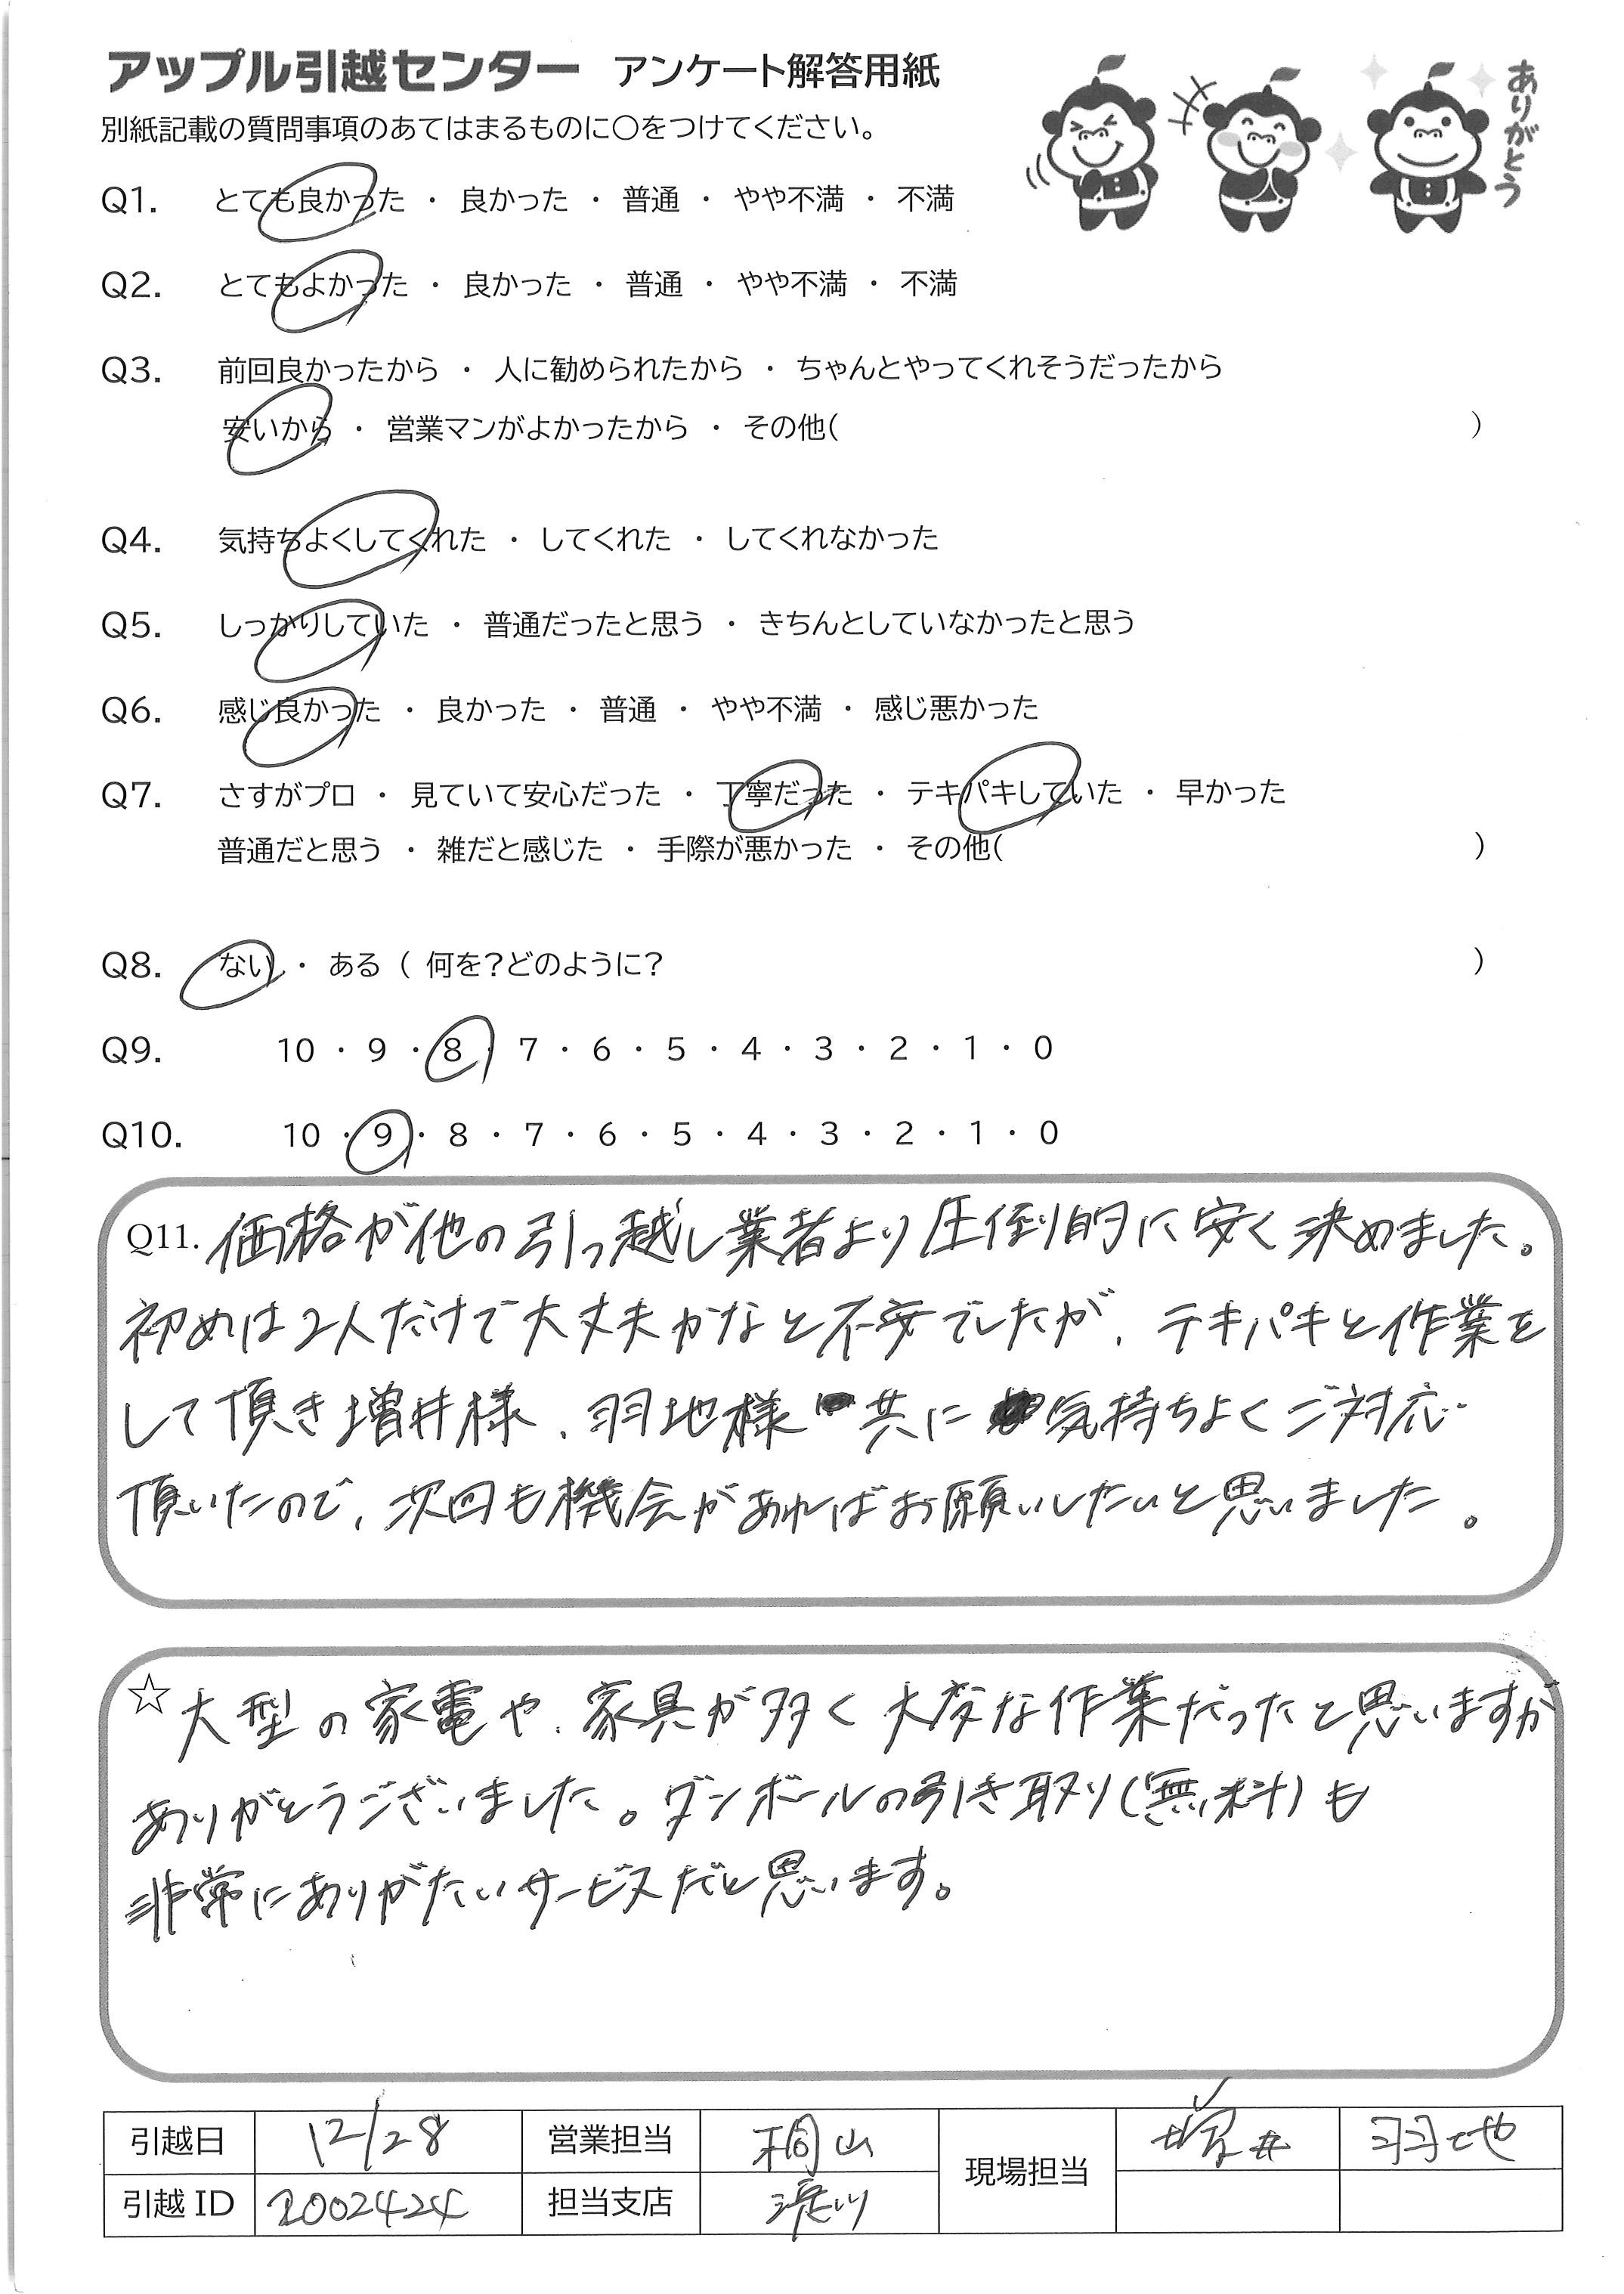 アップル引越センター アンケート解答用紙
ありがとう
別紙記載の質問事項のあてはまるものに○をつけてください。
Q1. とても良かった ・ 良かった ・ 普通 ・ やや不満 ・ 不満
Q2. とてもよかった ・ 良かった ・ 普通 ・ やや不満 ・ 不満
Q3. 前回良かったから ・ 人に勧められたから ・ ちゃんとやってくれそうだったから
安いから ・ 営業マンがよかったから ・ その他( )
Q4. 気持ちよくしてくれた ・ してくれた ・ してくれなかった
Q5. しっかりしていた ・ 普通だったと思う ・ きちんとしていなかったと思う
Q6. 感じ良かった ・ 良かった ・ 普通 ・ やや不満 ・ 感じ悪かった
Q7. さすがプロ ・ 見ていて安心だった ・ 丁寧だった ・ テキパキしていた ・ 早かった
普通だと思う ・ 雑だと感じた ・ 手際が悪かった ・ その他( )
Q8. ない ・ ある ( 何を?どのように? )
Q9. 10 ・ 9 ・ 8 ・ 7 ・ 6 ・ 5 ・ 4 ・ 3 ・ 2 ・ 1 ・ 0
Q10. 10 ・ 9 ・ 8 ・ 7 ・ 6 ・ 5 ・ 4 ・ 3 ・ 2 ・ 1 ・ 0
Q11. 価格が他の引っ越し業者より圧倒的に安く決めました。
初めは2人だけで大丈夫かなと不安でしたが、テキパキと作業を
して頂き増井様、羽地様共に気持ちよくご対応
頂いたので、次回も機会があればお願いしたいと思いました。
☆大型の家電や、家具が多く大変な作業だったと思いますが
ありがとうございました。ダンボールの引き取り(無料)も
非常にありがたいサービスだと思います。
引越日 12/28 営業担当 桐山 現場担当 増井 羽地
引越ID 2002424 担当支店 淀川